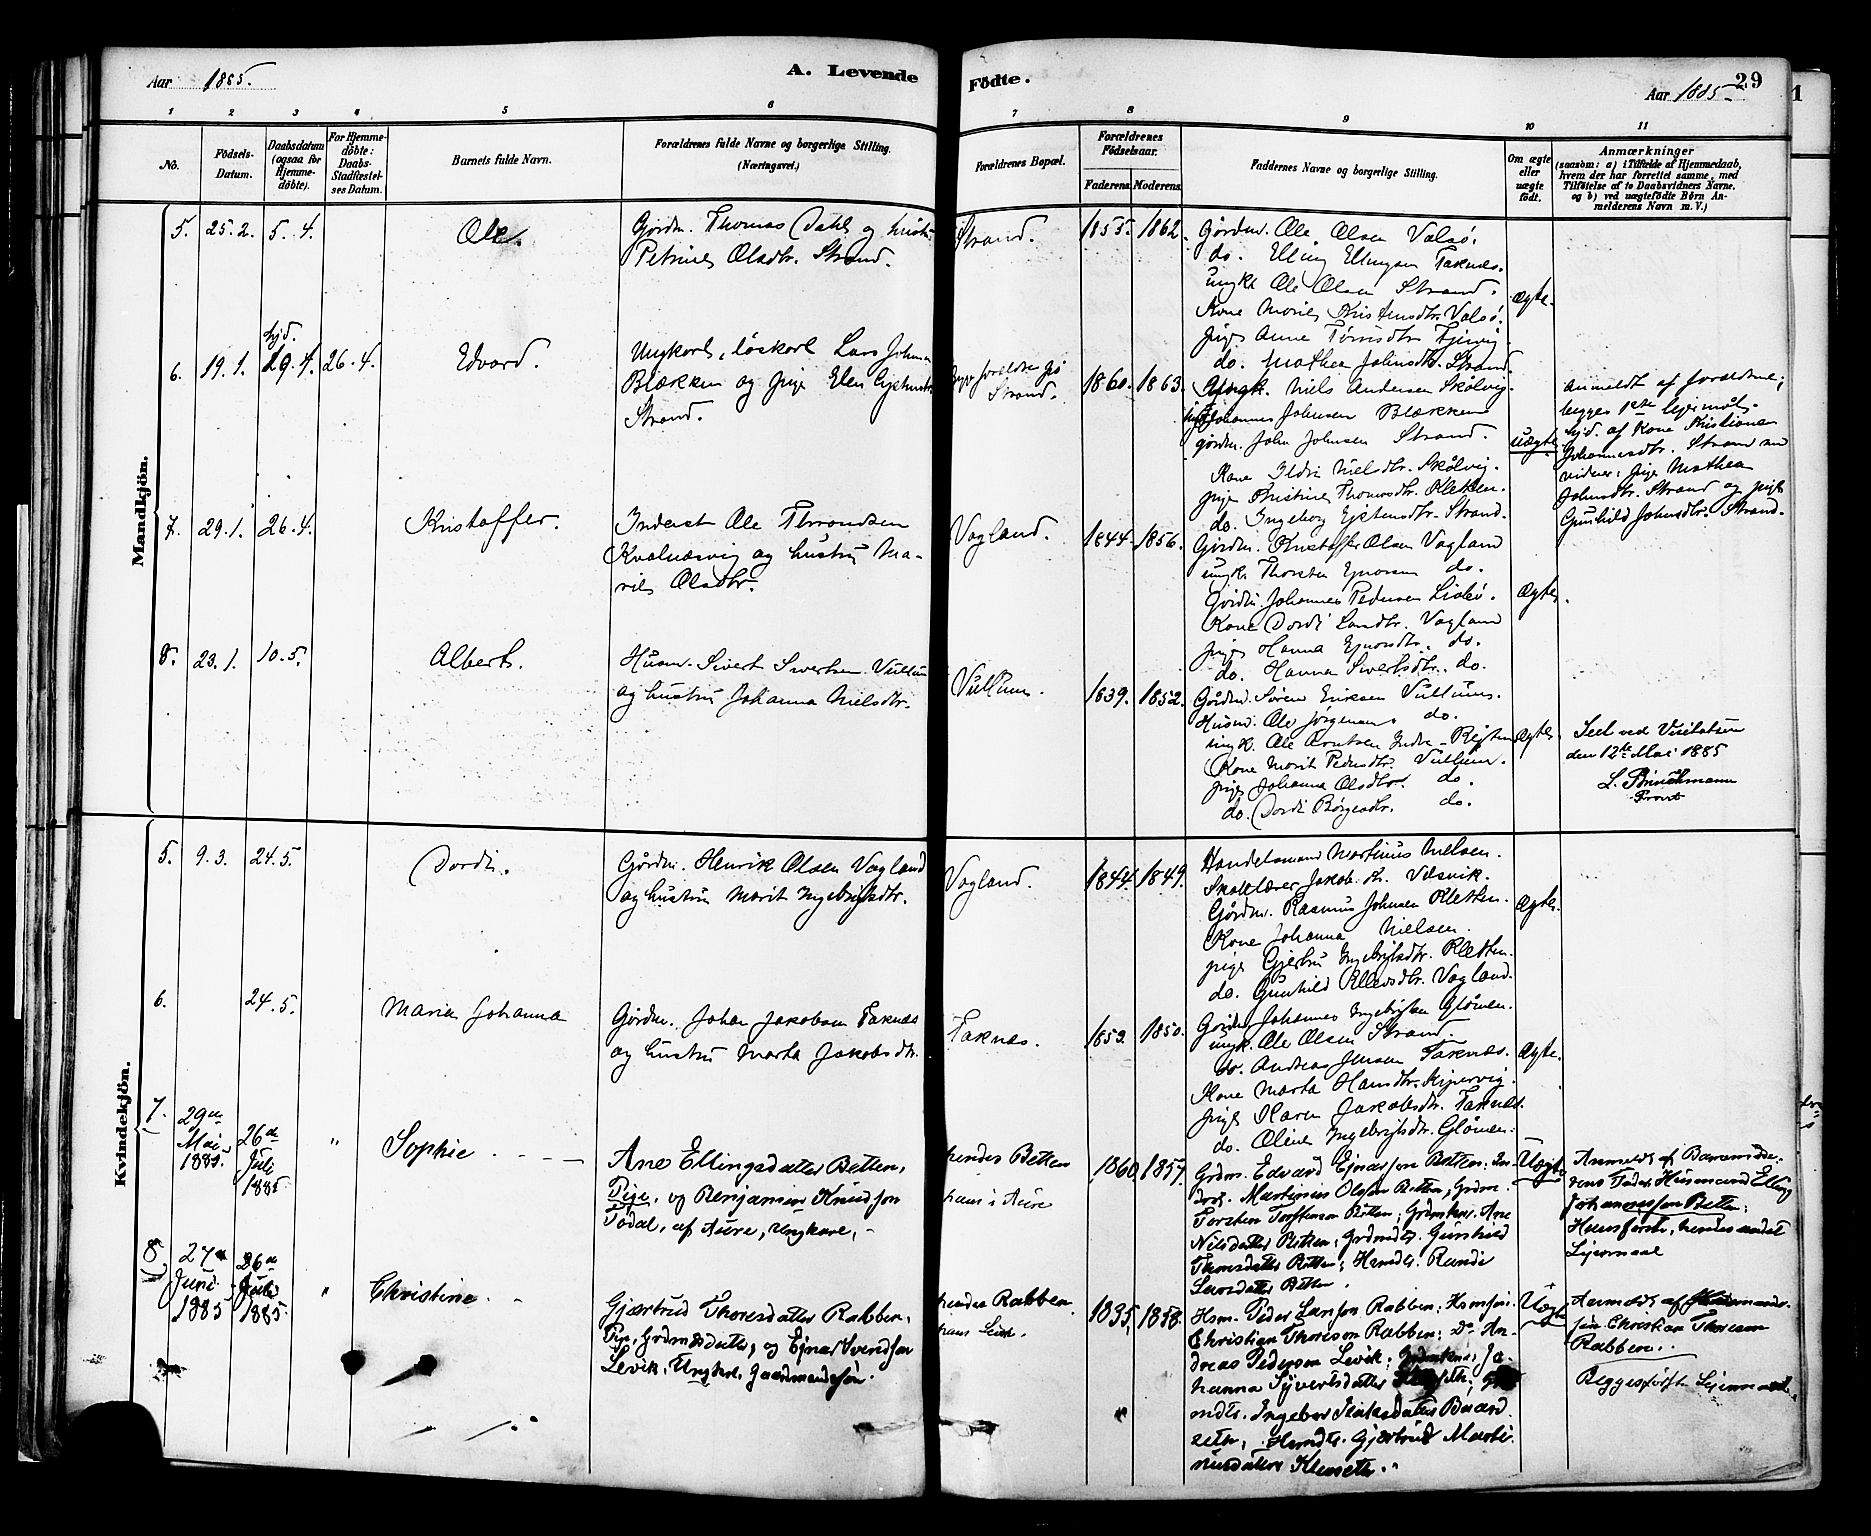 Aar 1885.
A. Levende
Födte.
Aar 1885.
29
1 2 3 4 5 6 7 8 9 10 11
No.
Födsels-Datum.
Daabsdatum (ogsaa for Hjemme-döbte).
For Hjemme-döbte: Daabs-Stadfæstel-ses Datum.
Barnets fulde Navn.
Forældrenes fulde Navne og borgerlige Stilling. (Næringsvei.)
Forældrenes Bopæl.
Forældrenes Födselsaar.
Faderens. Moderens.
Faddernes Navne og borgerlige Stilling.
Om ægte eller uægte födt.
Anmærkninger
(saasom: a) i Tilfælde af Hjemmedaab,
hvem der har forrettet samme, med
Tilföielse af to Daabsvidners Navne,
og b) ved uægtefödte Börn An-
melderens Navn m. V.)
Mandkjön.
5. 25.2. 5.4.
Ole.
Gårdm. Thomas Dahl og hustru
Petrine Olsdtr. Strand.
Strand.
1855. 1862.
Gårdm. Ole Olsen Valsö.
do. Elling Ellingsen Taknes.
ungk. Ole Olsen Strand.
Kone Marie Kristensdtr. Valsö.
pige Anne
do. Mathea Johnsdtr. Strand.
ægte.
6. 19.1. hjd. 29.4. 26.4.
Edvard.
Ungkarl, løskarl Lars Johnsen
Blækken og pige Elen
Strand.
Strand.
1860. 1863.
Ungk. Niels Andersen Skålvig.
Johannes Johnsen Blækken
gårdm. John Johnsen Strand.
Kone Ildri Nielsdtr. Skålvig.
pige Kristine Thomasdtr. Kletten.
do. Ingeborg Eystensdtr. Strand.
uægte
Anmeldt af forældrene;
begges 1ste lejermål.
hjd. af Kone Kristiane
Johannesdtr. Strand
vidner: pige Mathea
Johnsdtr. Strand og pige
Gunhild Johnsdtr. Strand.
7. 29.1. 26.4.
Kristoffer.
Inderst Ole Throndsen
Kvalnæsvig og hustru Ma-
rie Olsdtr.
Vagland.
1844. 1856.
Gårdm. Kristoffer Olsen Vagland
ungk. Thorsten do.
Gårdm. Johannes Pedersen
Kone Dordi Larsdtr. Vagland
pige Hanna do.
do. Hanna Sivertsdtr. do.
Ægte.
8. 23.1. 10.5.
Albert.
Husm. Sivert Sivertsen Vullum
og hustru Johanna Nielsdtr.
Vullum.
1839. 1852.
Gårdm. Søren Eriksen Vullum.
Husm. Ole Jörgensen do.
ungk. Ole Arntsen Indre-
Kone Marit Pedersdtr. Vullum.
pige Johanna Olsdtr. do.
do. Dordi Börgesdtr. do.
ægte.
Seet ved Visitatsen
den 12te Mai 1885
L. Brinchmann
Provst
Kvindekjön.
5. 9.3. 24.5.
Dordi.
Gårdm. Henrik Olsen Vagland
og hustru Marit Ingebrigtsdtr.
Vagland.
1844. 1849.
Handelsmand Martinus Nielsen.
Skolelærer Jakob
Gårdm. Rasmus Johnsen Kletten.
Kone Johanna Nielsen.
pige Gjertru Ingebrigtsdtr. Kletten.
do. Gunhild Ellevsdtr. Vagland.
ægte.
6. 24.5.
Maria Johanna
Gårdm. Johan Jakobsen Taknæs
og hustru Marta Jakobsdtr.
Taknæs.
1853. 1850.
Gårdm. Johannes Ingebrigtsen Glåmen.
ungk. Ole Olsen Strand.
do. Andreas Jensen Taknæs.
Kone Marta Hansdtr.
pige Maren Jakobsdtr. Taknæs.
do. Oline Ingebrigtsdtr. Glåmen.
ægte.
7. 29de Mai 1885. 26de Juli 1885 "
Sophie
Ane Ellingsdatter Betten,
Pige, og Benjamin Knudson
Tödal, af Aure, Ungkarl,
hendes Betten
hans i Aure
1860 1857.
Grdm. Edvard Ejnarson Betten;
Martinius Olson Betten; Grdm.
Torsten Torstenson Betten; Grdmkone Ane
Nilsdatter Betten; Grdmdtr. Gunhild
Thoresdatter Betten; Hsmdtr. Randi
Larsdatter Betten.
Uægte
Anmeldt af Barnemode-
rens Fader Husmand Elling
Johannesson Betten;
Hans förste, hendes andet
Leiermaal
8. 27de Juni 1885 26de Juli 1885. "
Christine
Gjærtrud Thoresdatter Rabben,
Pige, Grdmdatter, og Ejnar Svendsen
Levik, Ungkarl, Gaardmandssön.
hendes Rabben
hans Levik.
1835, 1858.
Hsm. Peder Larsson Rabben; Hsmsön
Christian Thoreson Rabben; Do An-
dreas Pederson Levik; Grdmkone Jo-
hanna Syvertsdatter
mdtr. Ingebor
Hsmdtr. Gjærtrud Marti-
nusdatter
Uægte
Anmeldt af
sön Christian Thoreson
Rabben.
Begges förste Leiermaal